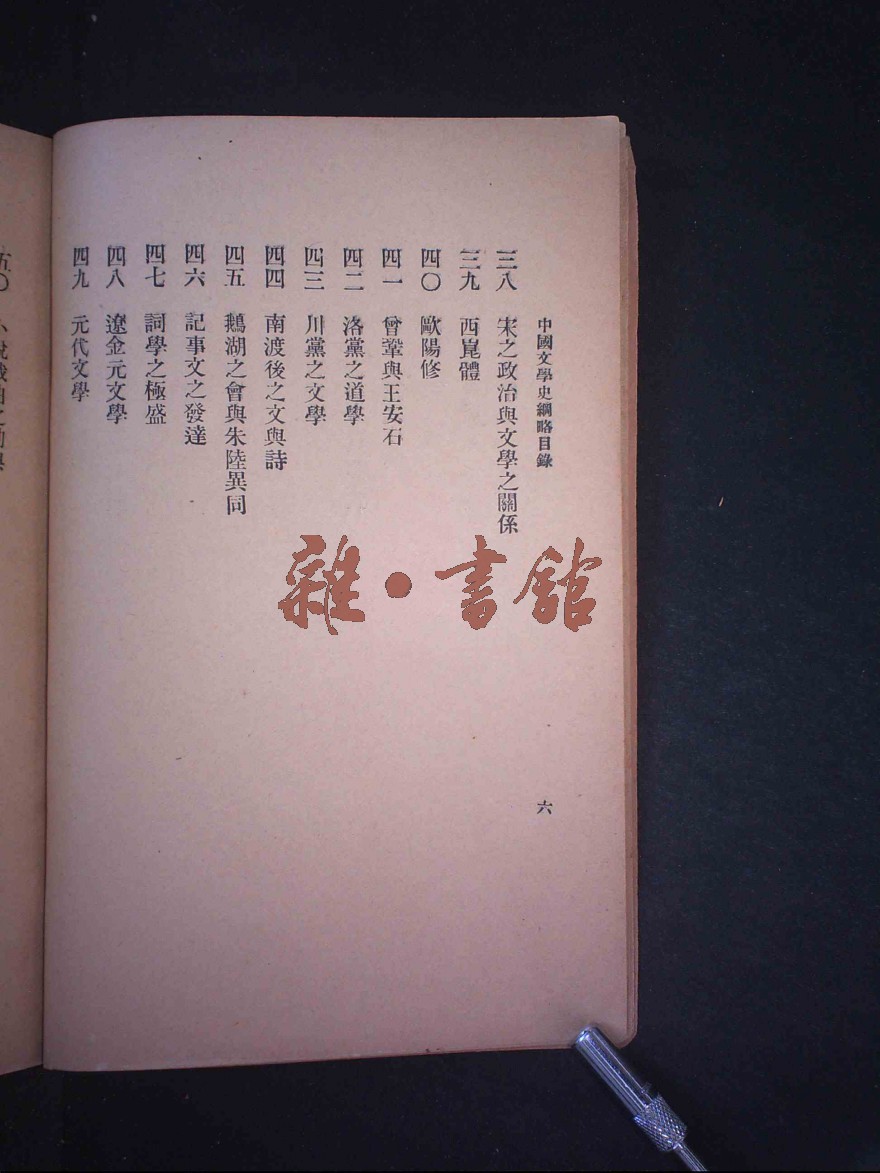 中國文學史綱略目錄
三八 宋之政治與文學之關係
三九 西崑體
四〇 歐陽修
四一 曾鞏與王安石
四二 洛黨之道學
四三 川黨之文學
四四 南渡後之文與詩
四五 鵝湖之會與朱陸異同
四六 記事文之發達
四七 詞學之極盛
四八 遼金元文學
四九 元代文學
六
五〇
雜·書館